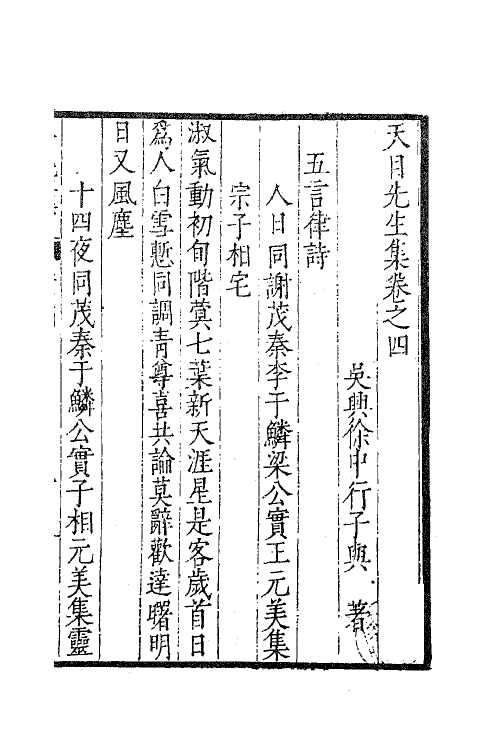 天目先生集卷之四
吳興徐中行子與著
五言律詩
人日同謝茂秦李于鱗梁公實王元美集
宗子相宅
淑氣動初旬階蓂七葉新天涯星是客歲首日
爲人白雪慙同調青尊喜共論莫辭歡達曙明
日又風塵
十四夜同茂秦于鱗公實子相元美集靈